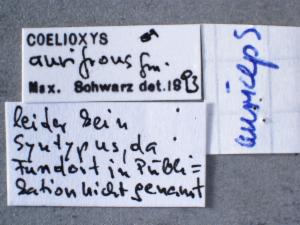 COELIOXYS ♂
aurifrons Sm.
Max. Schwarz det. 1993
leider kein
Syntypus, da
Fundort in Publi=
kation nicht genannt
auriceps